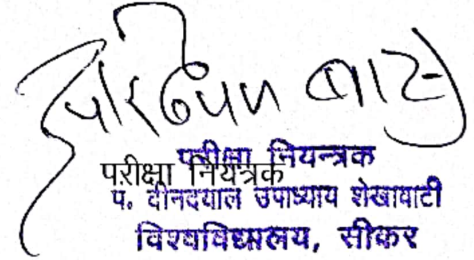 परीक्षा नियन्त्रक
परीक्षा नियंत्रक
पं. दीनदयाल उपाध्याय शेखावाटी
विश्वविद्यालय, सीकर